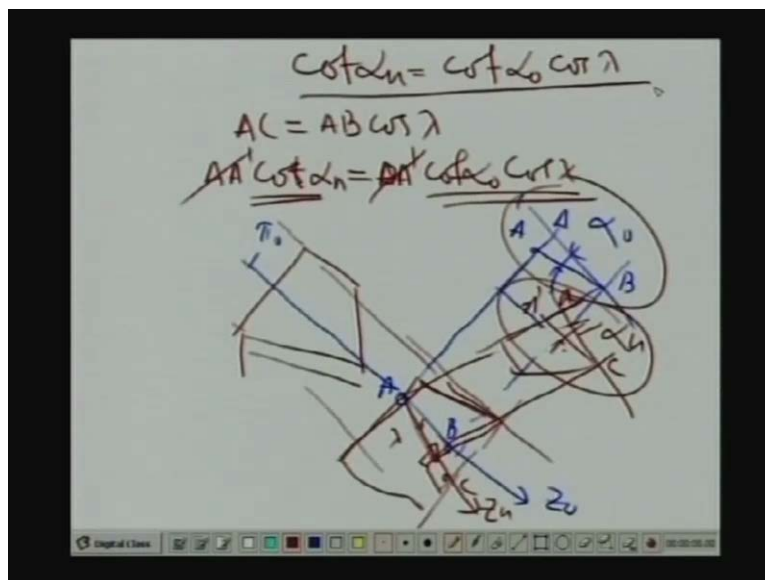 cot αn = cot α0 cos λ
AC = AB cos λ
AA' cot αn = AA' cot α0 cos λ
π0
A
Δ
α0
B
A'
A
αn
C
A
λ
B
C
Zn
Z0
Digital Class
00:00:00.00